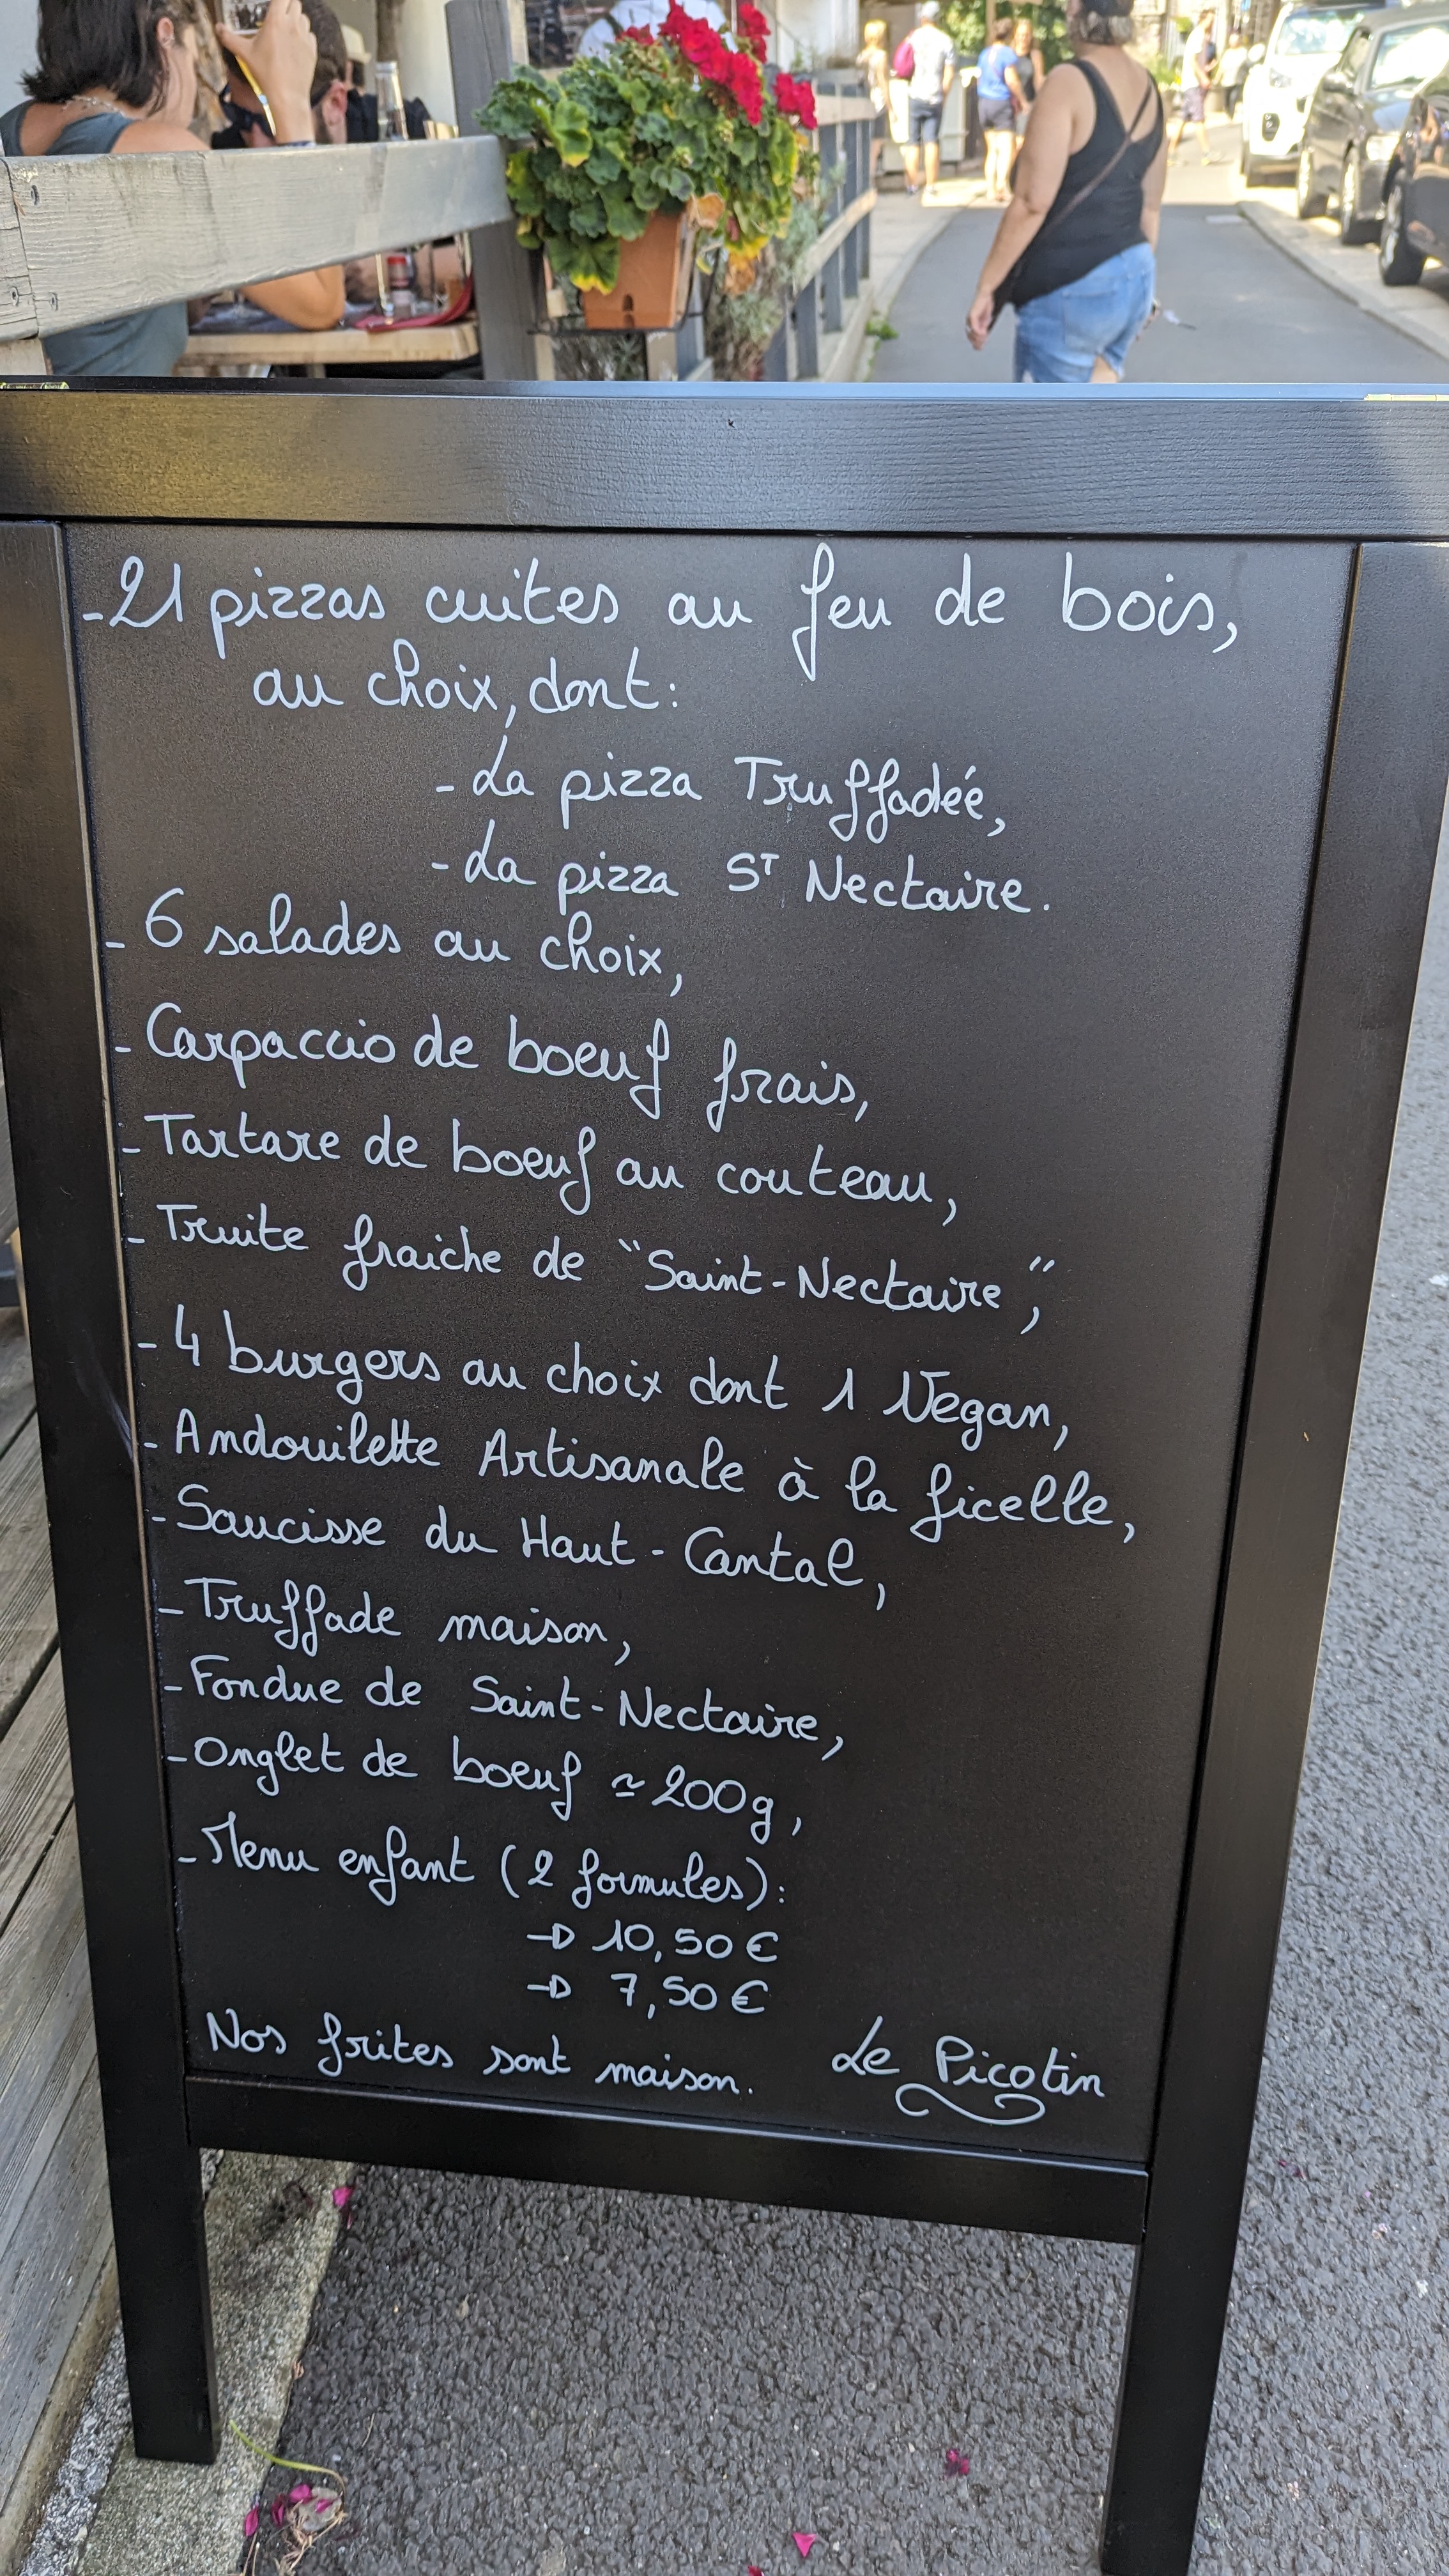 -21 pizzas cuites au feu de bois,
au choix, dont:
- La pizza Truffadée,
- La pizza ST Nectaire.
- 6 salades au choix,
- Carpaccio de boeuf frais,
- Tartare de boeuf au couteau,
- Truite fraiche de "Saint-Nectaire",
- 4 burgers au choix dont 1 Vegan,
- Andouilette Artisanale à la ficelle,
- Saucisse du Haut-Cantal,
- Truffade maison,
- Fondue de Saint-Nectaire,
- Onglet de boeuf ≃ 200g,
- Menu enfant (2 formules):
→ 10,50€
→ 7,50€
Nos frites sont maison. Le Picotin